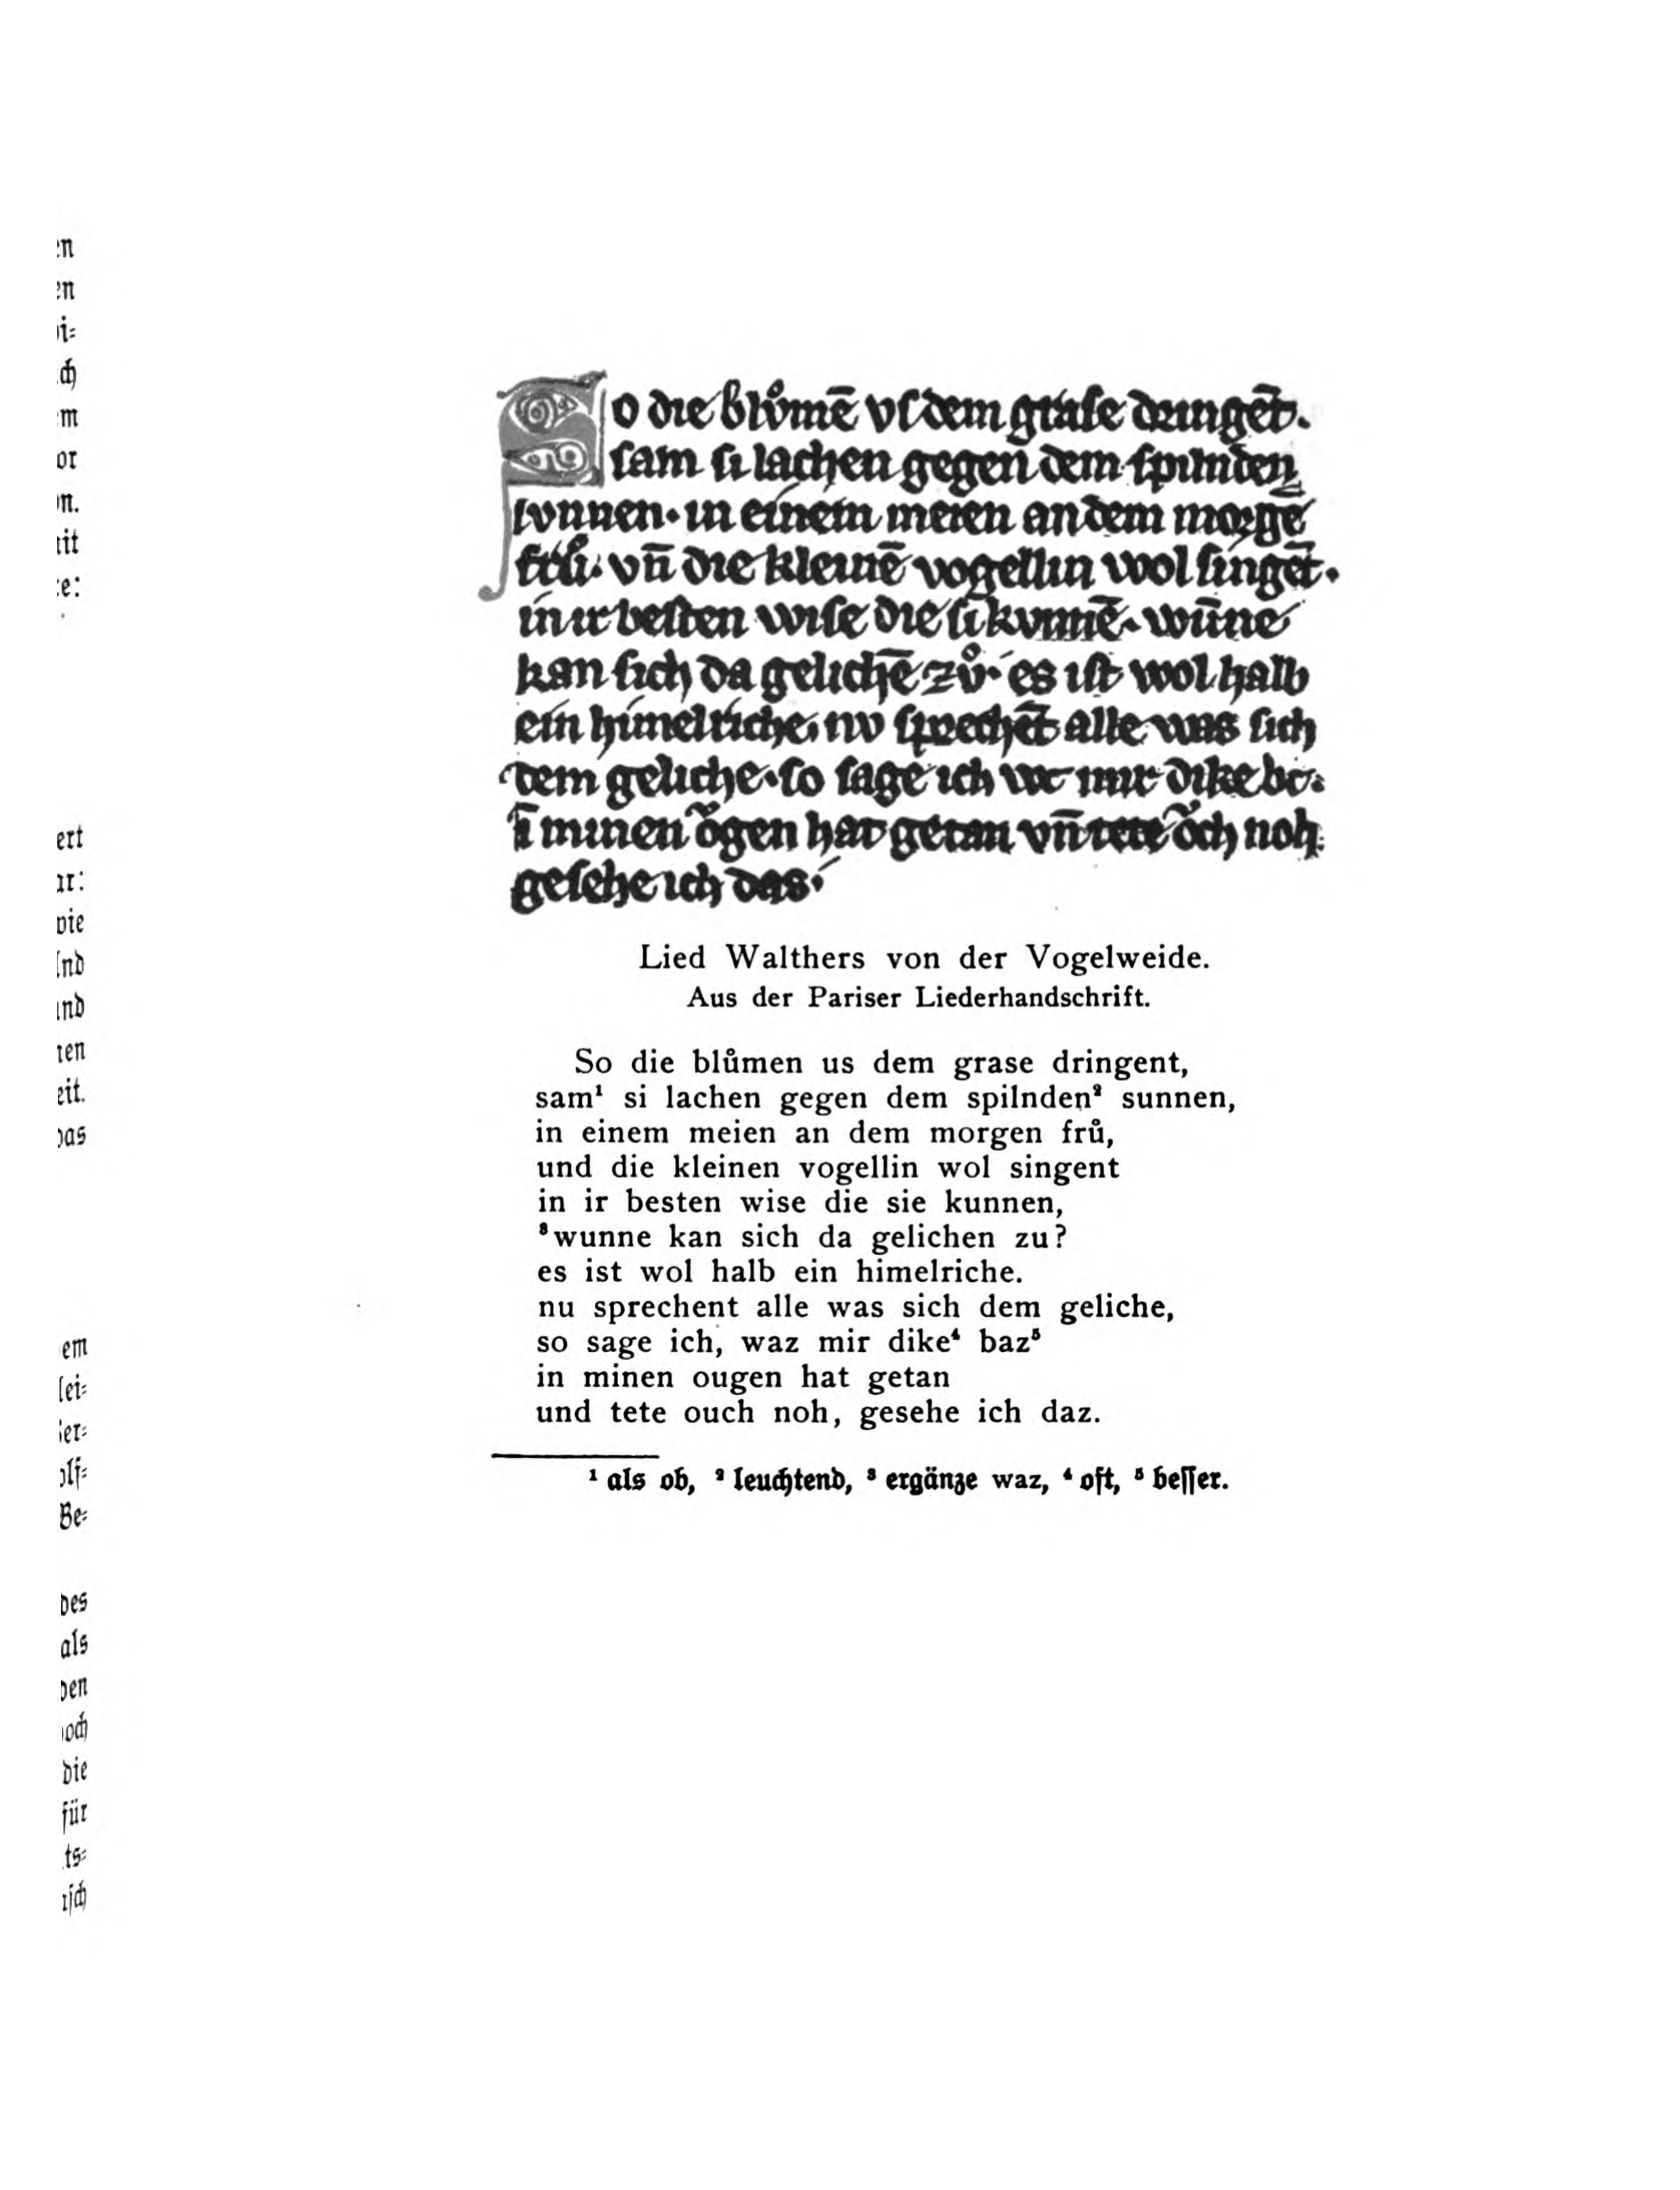 So die blůmē vſ dem graſe dꝛingēt.
ſam ſi lachen gegen dem ſpilnden
ſvnnen. in einem meien an dem moꝛgē
frů. vn̄ die kleinē vogellin wol ſingēt.
in ir beſten wiſe die ſi kvnnē. wūne
kan ſich da gelichē zů. es iſt wol halb
ein himelriche. nv ſprechēt alle was ſich
dem geliche. ſo ſage ich mir dike
minen ogen hat getan vn̄ tete och noh
geſehe ich das.
Lied Walthers von der Vogelweide.
Aus der Pariser Liederhandschrift.
So die blůmen us dem grase dringent,
sam¹ si lachen gegen dem spilnden² sunnen,
in einem meien an dem morgen frů,
und die kleinen vogellin wol singent
in ir besten wise die sie kunnen,
³wunne kan sich da gelichen zu?
es ist wol halb ein himelriche.
nu sprechent alle was sich dem geliche,
so sage ich, waz mir dike⁴ baz⁵
in minen ougen hat getan
und tete ouch noh, gesehe ich daz.
¹ als ob, ² leuchtend, ³ ergänze waz, ⁴ oft, ⁵ besser.